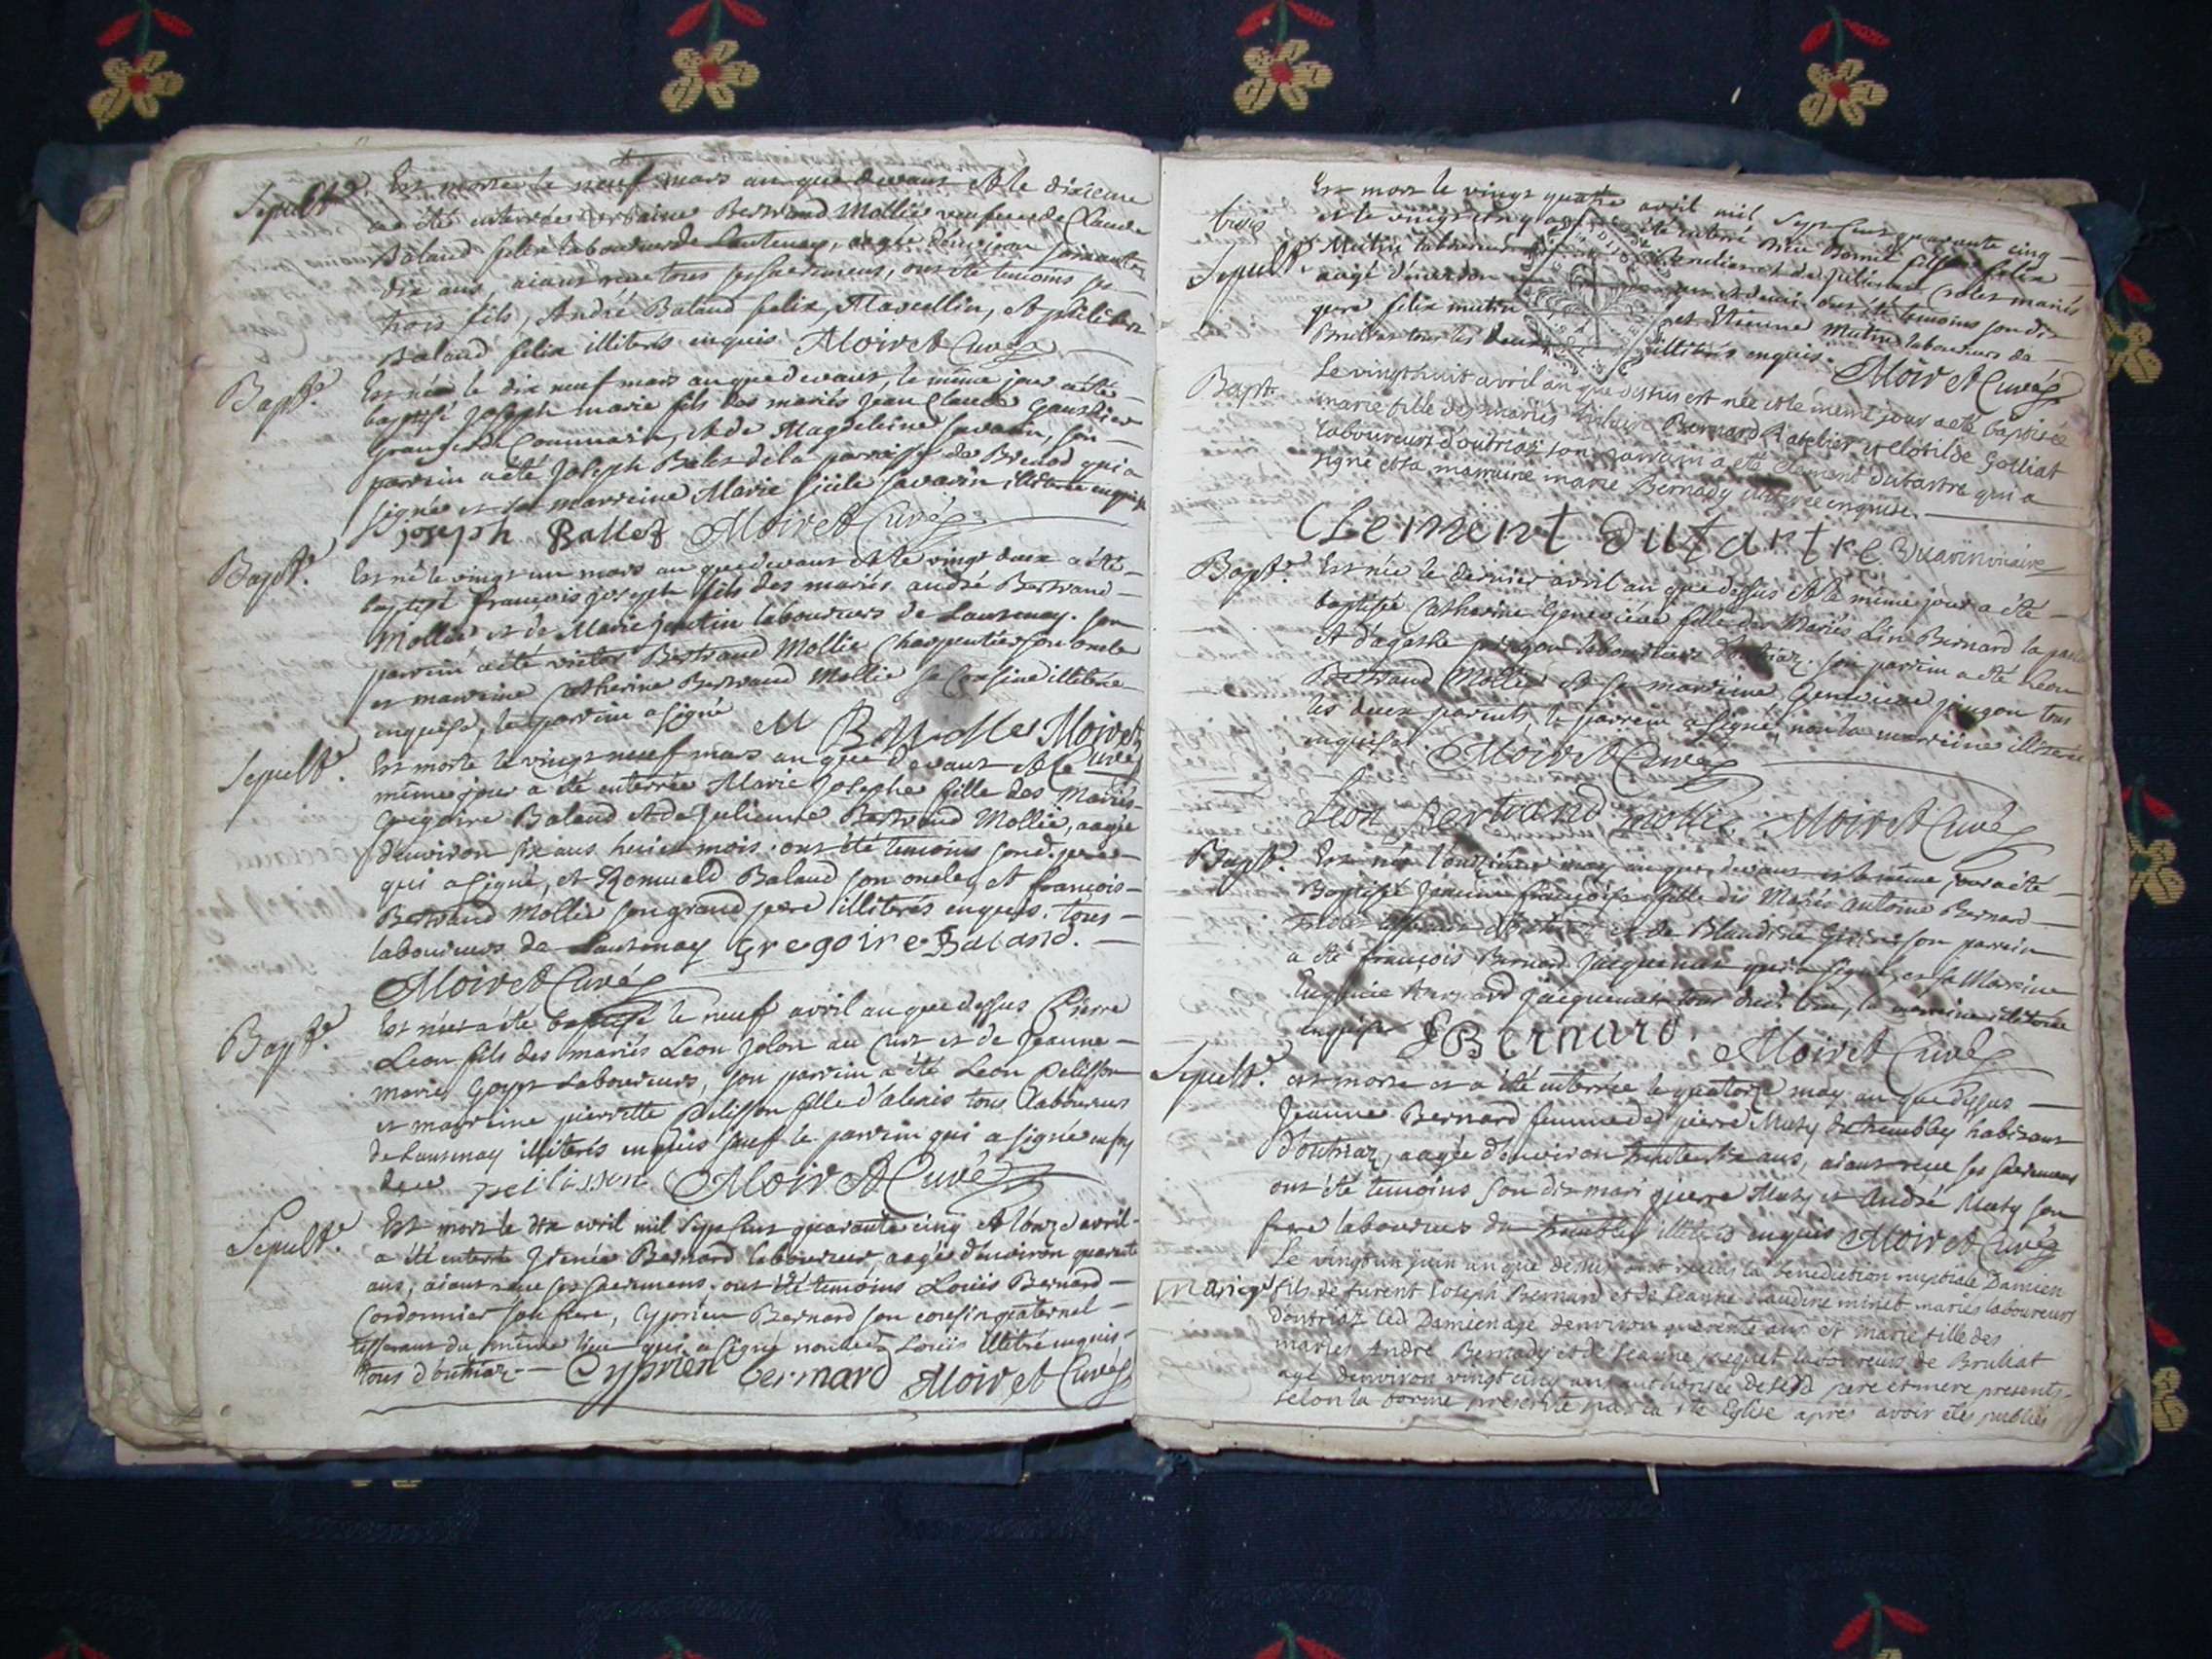 Sepult.re Est morte le neuf mars an que devant et le dixieme
a été enterrée Bertrand Mollie veufve de Claude
Baland felix laboureur de Lantenay, aagée d'environ soixante
dix ans, aiant receu tous ses sacremens, ont été temoins ses
trois fils, André Baland felix, Marcellin, et philibert
Baland felix illiterés enquis Moiret Curé
Bapt.e Est née le dix neuf mars an que devant, le même jour a été
baptisé Joseph marie fils des mariés Jean Claude
granger de et de Magdeleine Savarin, son
parrein a été Joseph Balet de la paroisse de Brenod qui a
signé et sa marreine Marie Savarin, illiterée enquise
joseph Ballet Moiret Curé
Bapt.e Est né le vingt un mars an que devant et le vingt deux a été
baptisé françois joseph fils des mariés andré Bertrand
Mollie et de Marie laboureurs de Lantenay. son
parrein a été victor Bertrand Mollie Charpentier son oncle
et marreine Catherine Bertrand Mollie sa Cousine illiterée
enquise, le parrein a signé Moiret
Curé
Sepult.e Est morte le vingt neuf mars an que devant et le
même jour a été enterrée Marie Josephe fille des Mariés
Gregoire Baland et de Julienne Bertrand Mollie, aagée
d'environ six ans huict mois. ont été temoins sond. pere
qui a signé, et Romuald Baland son oncle, et françois
Bertrand Mollie son grand pere illiterés enquis. tous
laboureurs de Lantenay Gregoire Baland.
Moiret Curé
Bapt.e Est né et a été baptisé le neuf avril an que dessus Pierre
Leon fils des mariés Leon au et de Jeanne
marie laboureurs, son parrein a été Leon Pelisson
et marreine pierrette Pelisson fille d'alexis tous laboureurs
de Lantenay illiterés enquis sauf le parrein qui a signé
pellisson Moiret Curé
Sepult.e Est mort le dix avril mil sept cens quarante cinq et l'onze avril
a été enterré Bernard laboureur, aagé d'environ quarante
ans, aiant receu ses sacremens, ont été temoins Louis Bernard
Cordonnier son frere, Cyprien Bernard son cousin paternel
tisserant du même lieu qui a signé non led. Louis illiteré enquis
tous d'outriaz Cyprien bernard Moiret Curé
Est mort le vingt quatre avril mil sept cens quarante cinq
et le vingt cinq a été enterré fils de felix
Sepult.e Mutin laboureur mariés
aagé d'environ ont été temoins son dit
pere felix mutin et Etienne Mutin laboureurs de
tous les deux illiterés enquis. Moiret Curé
Bapt. Le vingt huit avril an que dessus est née et le meme jour a eté baptisée
marie fille des mariés Bernard et Clotilde Golliat
laboureurs d'outriaz son parrain a eté clement dutartre qui a
signé et sa marraine marie Bernady illiterée enquise.
CLement dutartre
Bapt.e Est née le dernier avril an que dessus et le même jour a été
baptisée Catherine Genevieve fille des Mariés Lin Bernard
et d'agathe laboureurs d'outriaz. son parrein a été Leon
Bertrand Mollie et sa marreine Genevieve tous
les deux parents, le parrein a signé, non la marreine illiterée
enquise. Moiret Curé
Leon Bertrand mollie Moiret Curé
Bapt.e Est née may an que devant et le même jour a été
Baptisée Jeanne françoise fille des Mariés antoine Bernard
et de Blandine son parrein
a été françois Bernard Jacquemet qui a signé, et sa Marreine
Bernard Jacquemet tous la marreine illiterée
enquise Bernard. Moiret Curé
Sepult.e est morte et a été enterrée le quatorze may an que dessus
Jeanne Bernard femme de pierre habitant
d'outriaz, aagée d'environ ans, aiant receu ses sacremens
ont été temoins son dit mari pierre et andré son
frere laboureurs illiterés enquis Moiret Curé
Le vingt un juin an que dessus ont receus la benediction nuptiale Damien
mariage fils de furent Joseph Bernard et de Jeanne Claudine minet mariés laboureurs
d'outriaz led. Damien agé denviron quarente ans et marie fille des
mariés André Bernady et de Jeanne jaquet laboureurs de Bruliat
agé denviron vingt cinq ans authorisée de sesd. pere et mere presents
selon la forme prescrite par la Ste Eglise apres avoir etés publiés